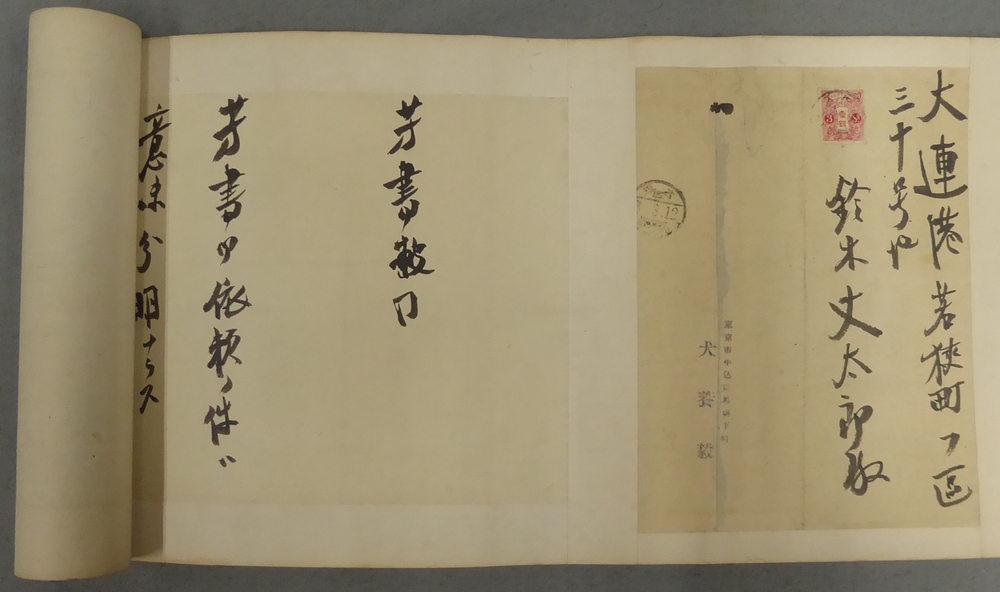 大連港若狭町フ区
三十号地
鈴木丈太郎殿
3
東京市牛込区馬場下町
犬養毅
芳書敬同
芳書中依頼ノ件ハ
意味分明ナラス